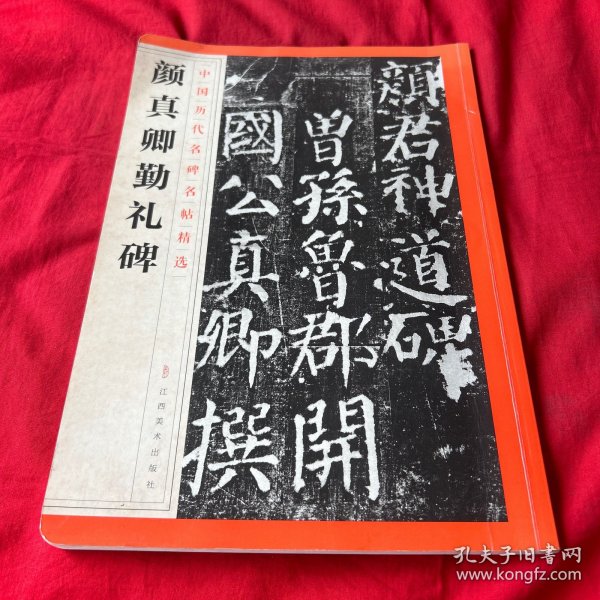 颜真卿勤礼碑
中国历代名碑名帖精选
江西美术出版社
顏君神道碑
曾孫魯郡開
國公真卿撰
孔夫子旧书网
www.kongfz.com